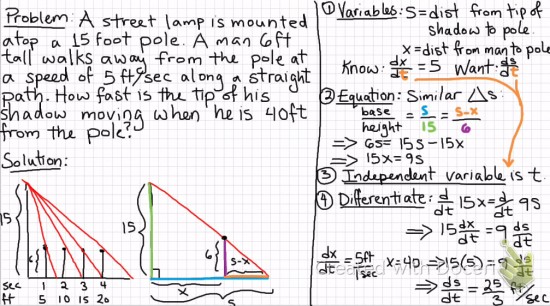 Problem: A street lamp is mounted
atop a 15 foot pole. A man 6ft
tall walks away from the pole at
a speed of 5 ft/sec along a straight
path. How fast is the tip of his
shadow moving when he is 40ft
from the pole?
Solution:
15
6
sec 1 2 3 4
ft 5 10 15 20
15
6
s-x
x
s
① Variables: S=dist from tip of
shadow to pole.
x=dist from man to pole
Know: dx/dt = 5 Want: ds/dt
② Equation: Similar △s:
base/height = s/15 = s-x/6
⇒ 6s = 15s - 15x
⇒ 15x = 9s
③ Independent variable is t.
④ Differentiate: d/dt 15x = d/dt 9s
⇒ 15 dx/dt = 9 ds/dt
dx/dt = 5ft/1sec x=40 ⇒ 15(5) = 9 ds/dt
⇒ ds/dt = 25/3 ft/sec